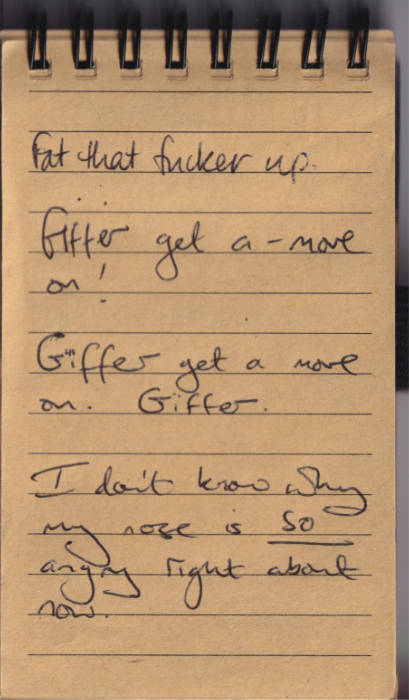 Fat that fucker up.
Giffer get a-move
on!
Giffer get a move
on. Giffer.
I don't know why
my nose is so
angry right about
now.